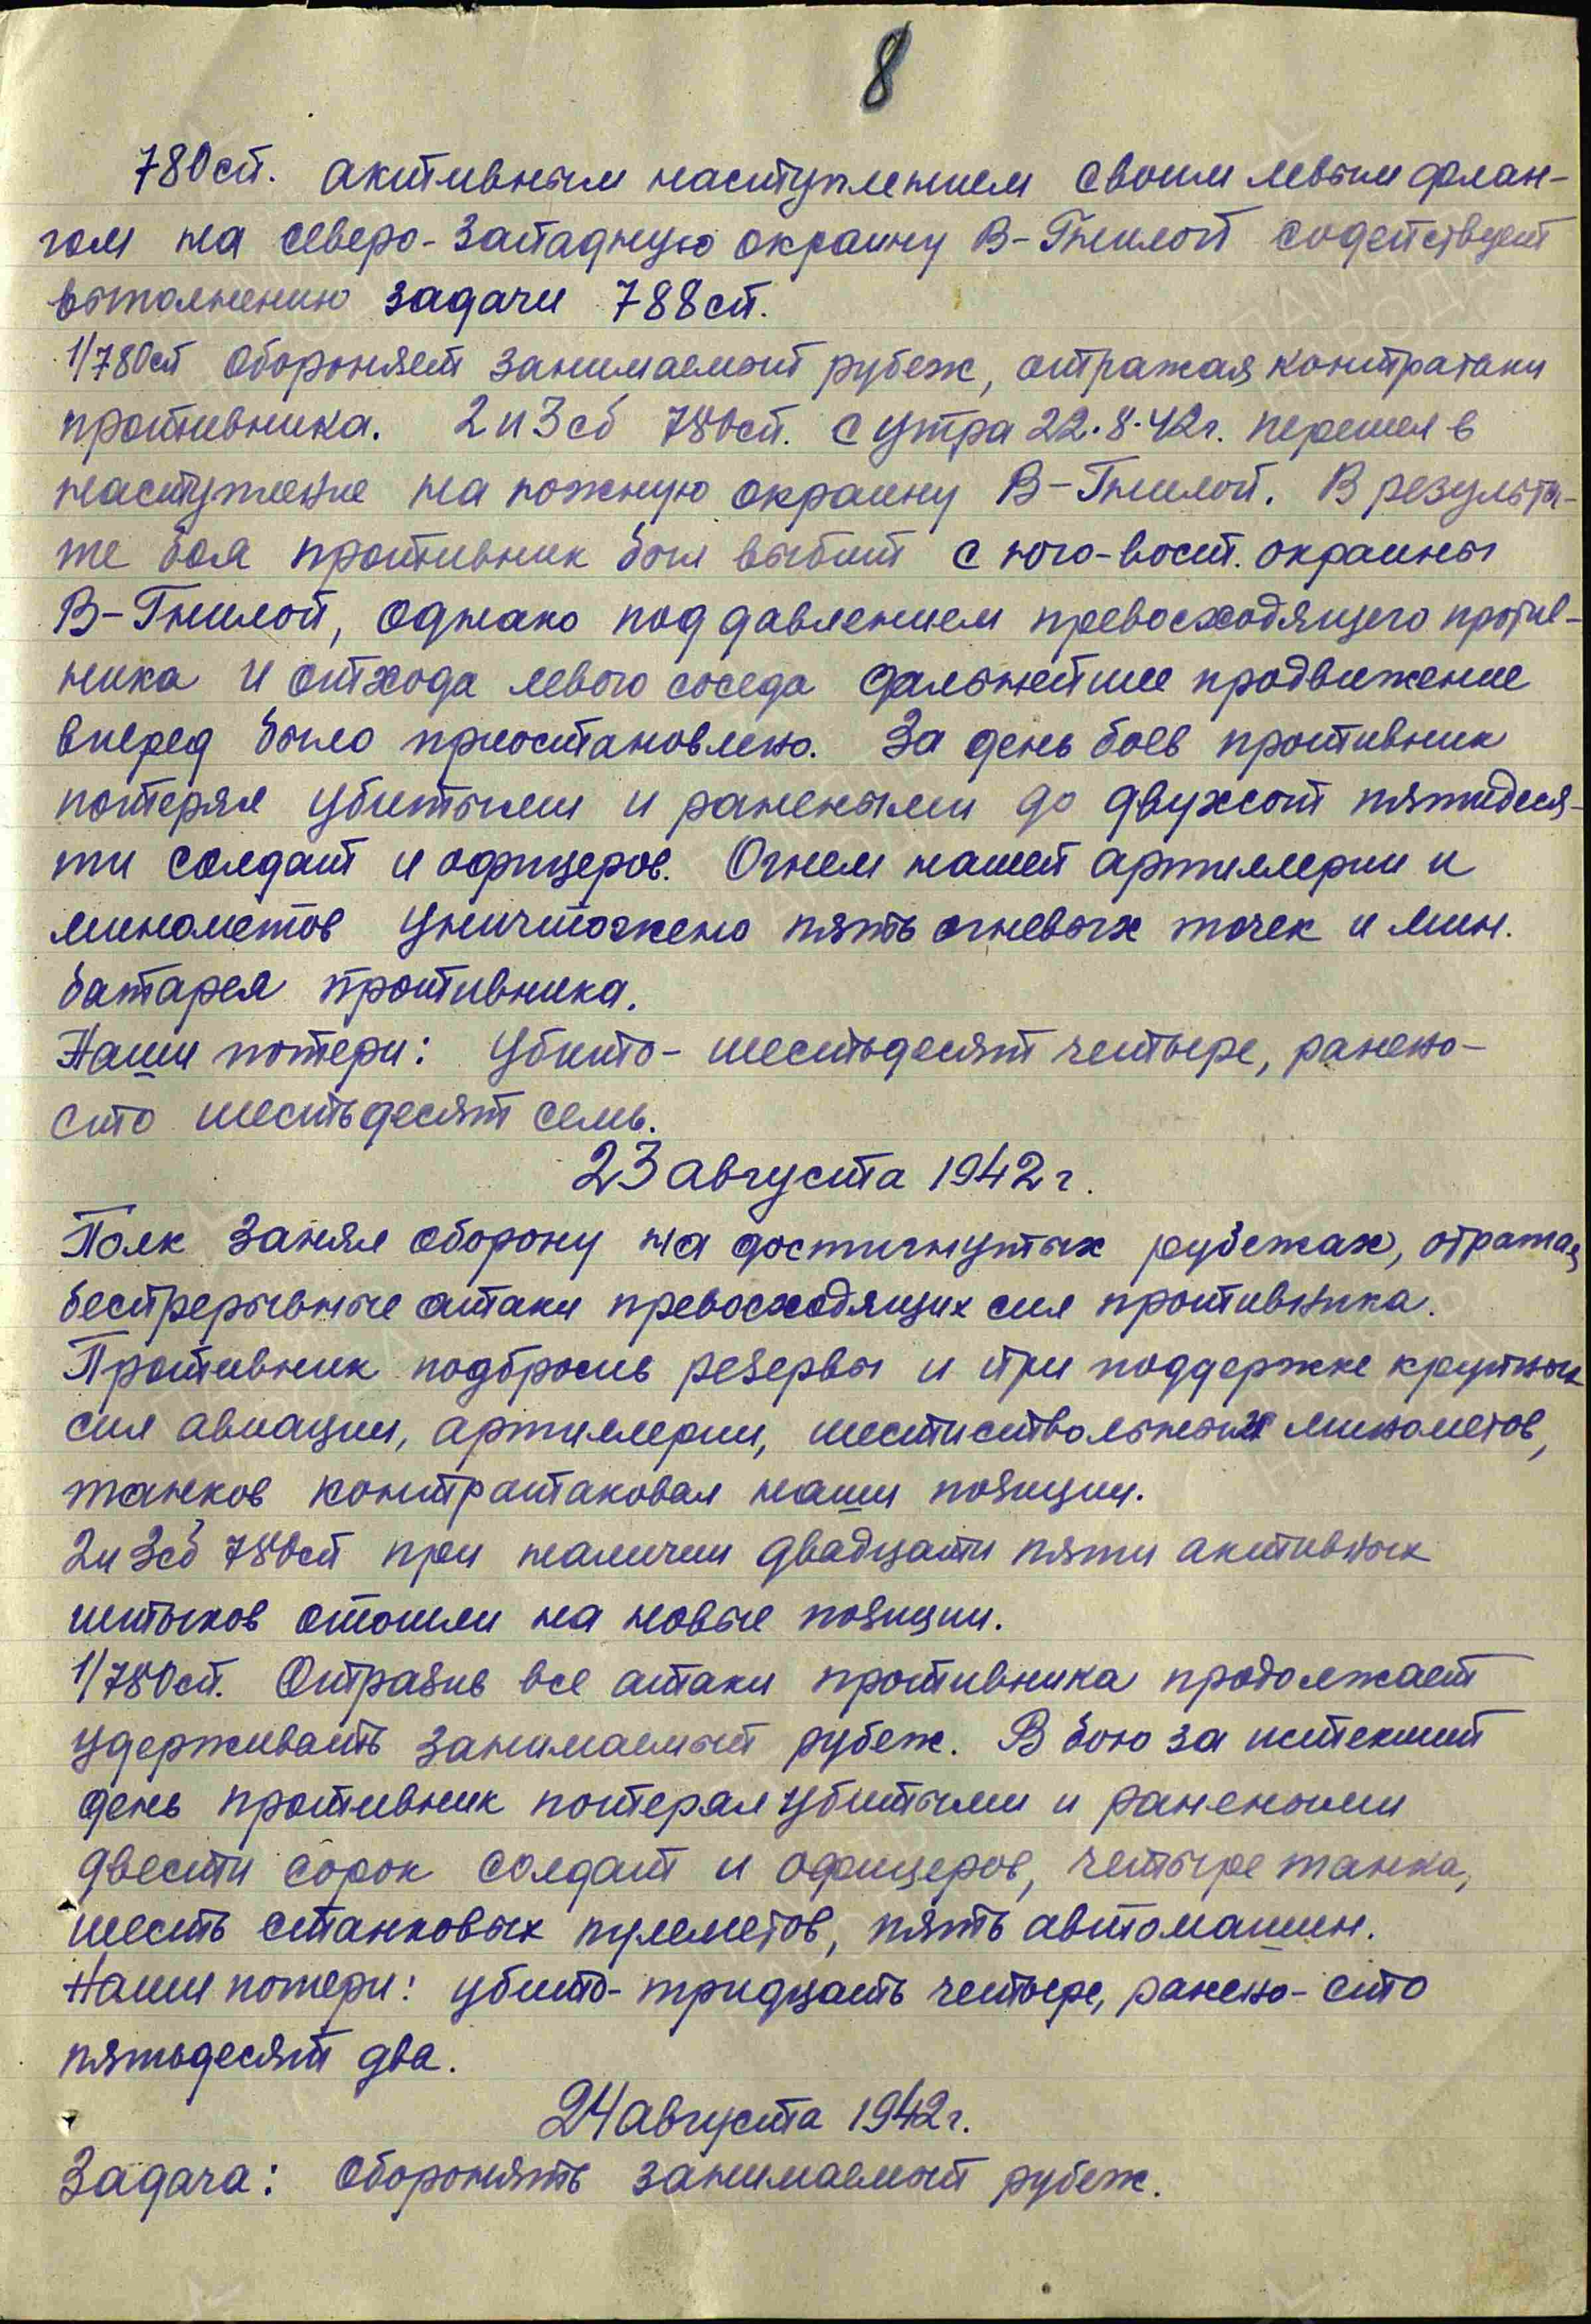 8
780сп. активным наступлением своим левым флан-
гом на северо-западную окраину В-Гнилой содействует
выполнению задачи 788сп.
1/780сп обороняет занимаемый рубеж, отражая контратаки
противника. 2 и 3 сб 780сп. с утра 22.8.42г. перешел в
наступление на южную окраину В-Гнилой. В результа-
те боя противник был выбит с юго-вост. окраины
В-Гнилой, однако под давлением превосходящего против-
ника и отхода левого соседа дальнейшее продвижение
вперед было приостановлено. За день боев противник
потерял убитыми и ранеными до двухсот пятидеся-
ти солдат и офицеров. Огнем нашей артиллерии и
минометов уничтожено пять огневых точек и мин.
батарея противника.
Наши потери: убито- шестьдесят четыре, ранено-
сто шестьдесят семь.
23 августа 1942 г.
Полк занял оборону на достигнутых рубежах, отражая
беспрерывные атаки превосходящих сил противника.
Противник подбросив резервы и при поддержке крупных
сил авиации, артиллерии, шестиствольных минометов,
танков контратаковал наши позиции.
2 и 3 сб 780сп при наличии двадцати пяти активных
штыков отошли на новые позиции.
1/780сп. Отразив все атаки противника продолжает
удерживать занимаемый рубеж. В бою за истекший
день противник потерял убитыми и ранеными
двести сорок солдат и офицеров, четыре танка,
шесть станковых пулеметов, пять автомашин.
Наши потери: убито- тридцать четыре, ранено- сто
пятьдесят два.
24 августа 1942г.
Задача: Оборонять занимаемый рубеж.